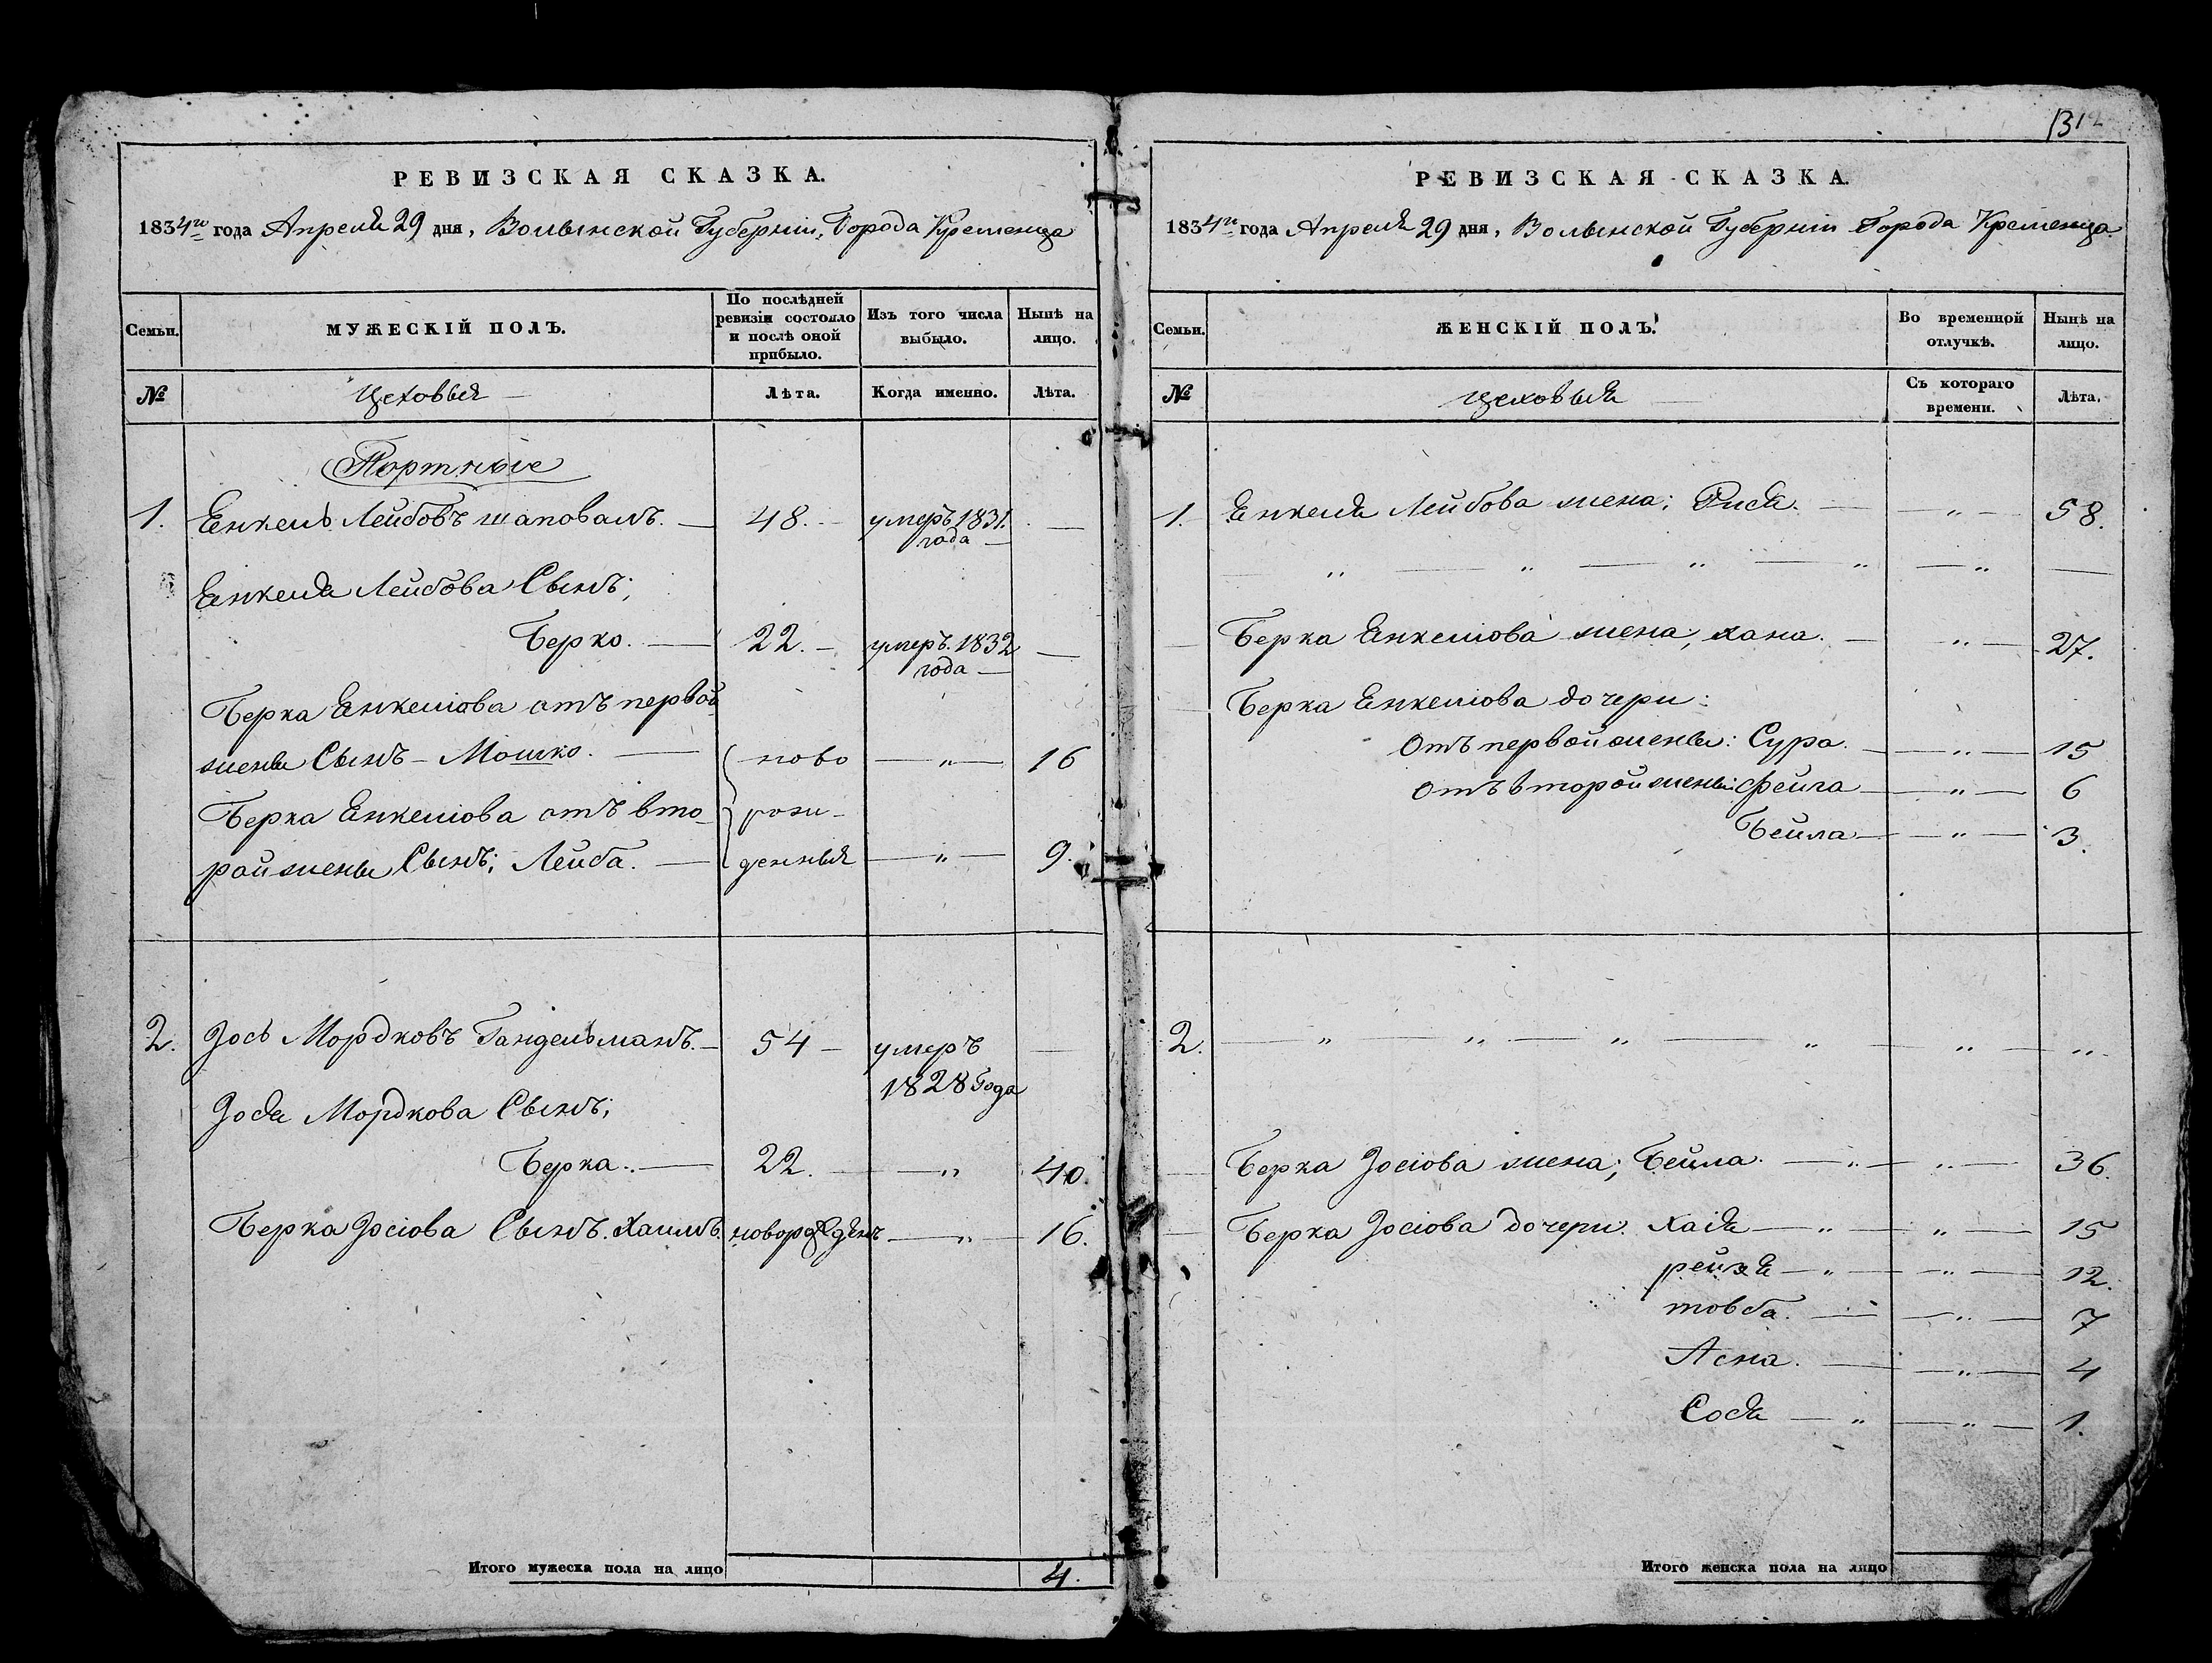 1312
РЕВИЗСКАЯ СКАЗКА.
1834го года Апреля 29 дня, Волынской Губерніи, Города Кременца
Семьи.
МУЖЕСКІЙ ПОЛЪ.
По послѣдней ревизіи состояло и послѣ оной прибыло.
Изъ того числа выбыло.
Нынѣ на лицо.
№
Цеховыя
Лѣта.
Когда именно.
Лѣта.
Портные
1. Енкель Лейбовъ шаповалъ. 48. умеръ 1831. года
Енкеля Лейбова Сынъ;
Берко. 22. умеръ. 1832 года
Берка Енкеліова отъ первой
жены Сынъ - Мошко. ново " 16
Берка Енкеліова отъ вто- рож-
рой жены Сынъ; Лейба. денныя " 9.
2. Іось Мордковъ Гандельманъ. 54 умеръ
1828 Года
Іося Мордкова Сынъ;
Берка. 22. " 40.
Берка Іосіова Сынъ. Хаимъ. новорожденъ " 16.
Итого мужеска пола на лицо 4.
РЕВИЗСКАЯ СКАЗКА.
1834го года Апреля 29 дня, Волынской Губерніи Города Кременца
Семьи.
ЖЕНСКІЙ ПОЛЪ.
Во временной отлучкѣ.
Нынѣ на лицо.
№
цеховыя
Съ котораго времени.
Лѣта.
1. Енкеля Лейбова жена: Рися. " 58.
" " " " "
Берка Енкеліова жена; хана. " 27.
Берка Енкеліова дочери:
Отъ первой жены: Сура. " 15
Отъ второй жены: Фейга " 6
Бейла " 3.
2. " " " " " "
Берка Іосіова жена; Бейла. " " 36.
Берка Іосіова дочери. Хаія " " 15
рейзя " " 12.
товба. " 7
Асна. " 4
Сося " " 1.
Итого женска пола на лицо